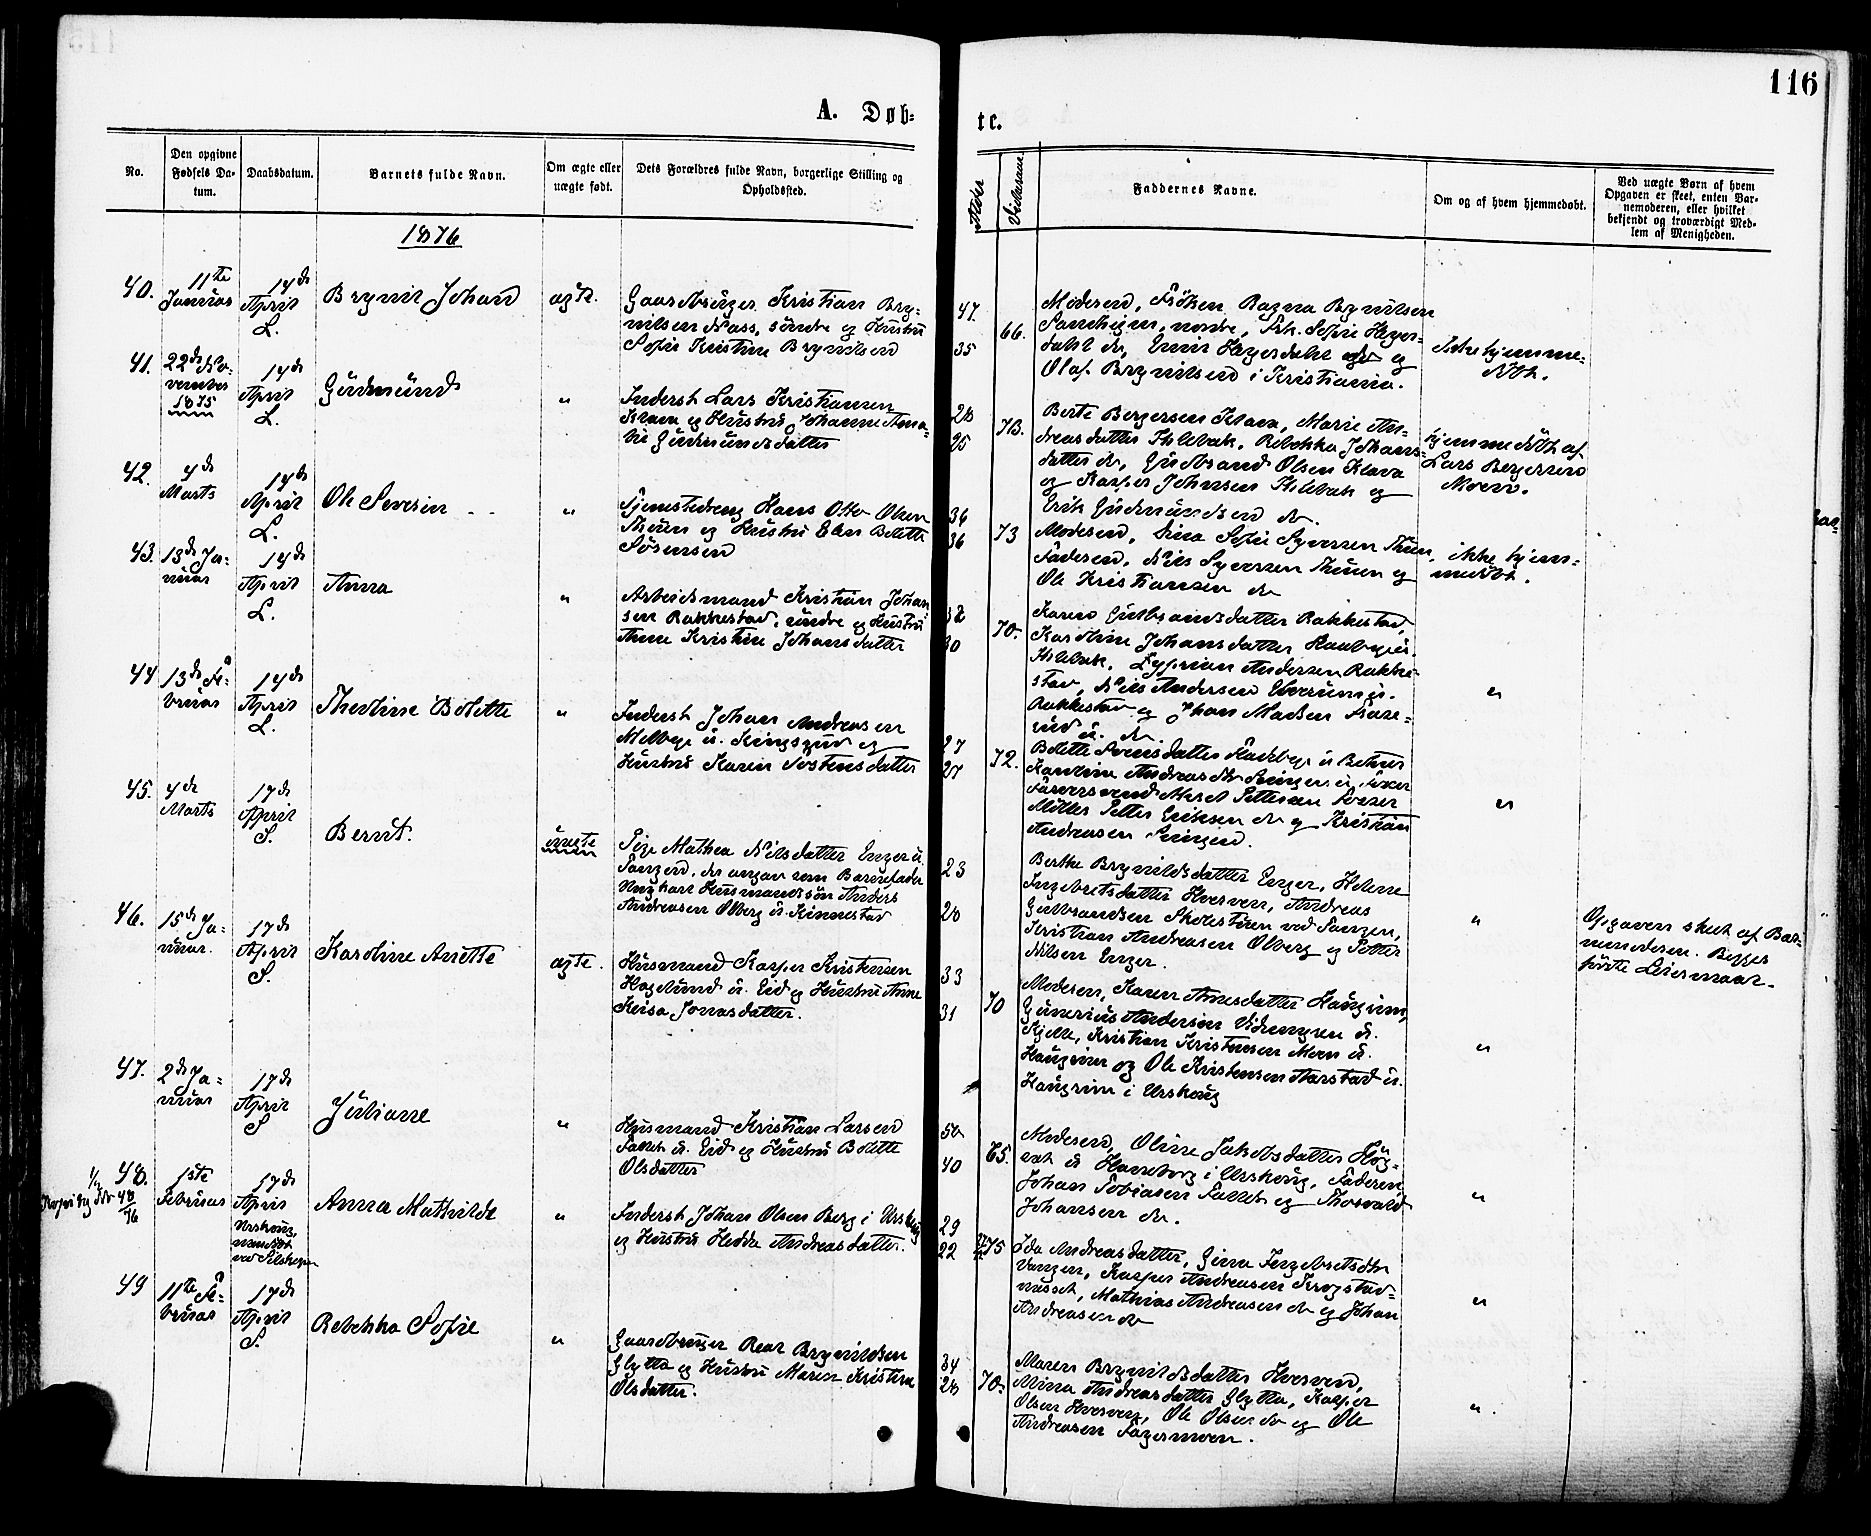 116
A. Døb-
te.
No.
Den opgivne
Fødsels Da-
tum.
Daabsdatum.
Barnets fulde Navn.
Om ægte eller
uægte født.
Dets Forældres fulde Navn, borgerlige Stilling og
Opholdssted.
Alder
Faddernes Navne.
Om og af hvem hjemmedøbt.
Ved uægte Børn af hvem
Opgaven er skeet, enten Bar-
nemoderen, eller hvilket
bekjendt og troværdigt Med-
lem af Menigheden.
1876
40.
11te
Januar
14de
April
L.
Brynil Johan
ægte.
Gaardbruger Kristian Bry-
nilsen Nass, søndre og Hustru
Sofie Kristine Brynilsen
47.
35
66.
Moderen, Frøken Ragna Brynilsen
nordre, Frk. Sofie Heyer-
dahl do, Emil Heyerdahl do og
Olaf Brynilsen i Kristiania.
Ikke hjemme-
døbt.
41.
22de No-
vember
1875
14de
April
L.
Gudmund
"
Inderst Lars Kristiansen
Klava og Hustru Johanne Ama-
lie Gudmundsdatter
28
25
73.
Berte Bergersen Klava, Marie An-
dreasdatter Holebæk, Rebekka Johans-
datter do, Gudbrand Olsen Klava
og Kasper Johnsen Holebæk og
Erik Gudmundsen do.
hjemmedøbt af
Lars Bergersen
Moen.
42.
4de
Marts
14de
April
L.
Ole Severin
"
Tjenestedreng Hans Otto Olsen
Thuen og Hustru Elen Bolette
Sørensen
36
36
73
Moderen, Lina Sofie Syversen Thuen,
Faderen, Nils Syversen Thuen og
Ole Kristiansen do
ikke hjem-
medøbt.
43.
13de Ja-
nuar
14de
April
L.
Anna
"
Arbeidsmand Kristian Johan
sen Rakkestad, søndre og Hustru
Anne Kristine Johansdatter
32
30
70.
Karen Gulbrandsdatter Rakkestad,
Karoline Johansdatter
Holebæk, Cyprian Andersen Rakke-
stad, Nils Andersen
Rakkestad og Johan Madsen
do.
"
44
13de Fe-
bruar
14de
April
L.
Theoline Bolette
"
Inderst Johan Andreasen
Melbye u. Kingsrud og
Hustru Karen Tostensdatter
27
27
72.
Bolette Svensdatter
Karoline Andreasdtr
Petersen
Møller Petter Eriksen do og Kristian
Andreasen
"
45.
4de
Marts
17de
April
S.
Bernt.
uægte
Pige Mathea Nilsdatter Enger u.
Fangen, der angav som Barnefader
Ungkarl Husmandssøn Anders
Andreasen Olberg u. Kinnestad
23
28
Berthe Brynildsdatter Enger, Helene
Ingebretsdatter Hvesven, Andreas
Gulbrandsen Skolestuen ved Fangen,
Kristian Andreasen Olberg og Petter
Nilsen Enger.
"
Opgaven skeet af Bar-
nemoderen. Begges
første Leiermaal.
46.
15de Ja-
nuar.
17de
April
S.
Karoline Anette
ægte.
Husmand Kasper Kristensen
Hagelund u. Eid og Hustru Anne
Keisa Jonasdatter.
33
31
70
Moderen, Karen Arnesdatter Haugrim,
Gunerius Andersen
Kjelle, Kristian Kristensen Moen u.
Haugrim og Ole Kristensen Aarstad u.
Haugrim i Urskoug
"
47.
2de Ja-
nuar
17de
April
S
Juliane
"
Husmand Kristian Larsen
Fallet u. Eid og Hustru Bolette
Olsdatter
50
40
65.
Moderen, Oline Jakobsdatter Høg-
u Haneborg i Urskoug, Faderen,
Johan Tobiasen Fallet og Thorvald
Johansen do.
"
48.
1ste
Februar
17de
April
Urskoug,
Anna Mathilde
"
Inderst Johan Olsen Berg i Urskoug
og Hustru Hedda Andreasdatter.
29
22
75
Ida Andreasdatter, Gina Ingebretsdtr
Vangen, Kasper Andreasen Krogstad-
Mathias Andreasen do og Johan
Andreasen do
"
49
11te Fe-
bruar
17de
April
S.
Rebekka Sofie
"
Gaardbruger Roar Brynildsen
Glytta og Hustru Maren Kristine
Olsdatter.
34
28
70.
Maren Brynildsdatter Hvesven,
Mina Andreasdatter Glytta, Kasper
Olsen Hvesven, Ole Olsen do og Ole
Andreasen Fagermoen.
"